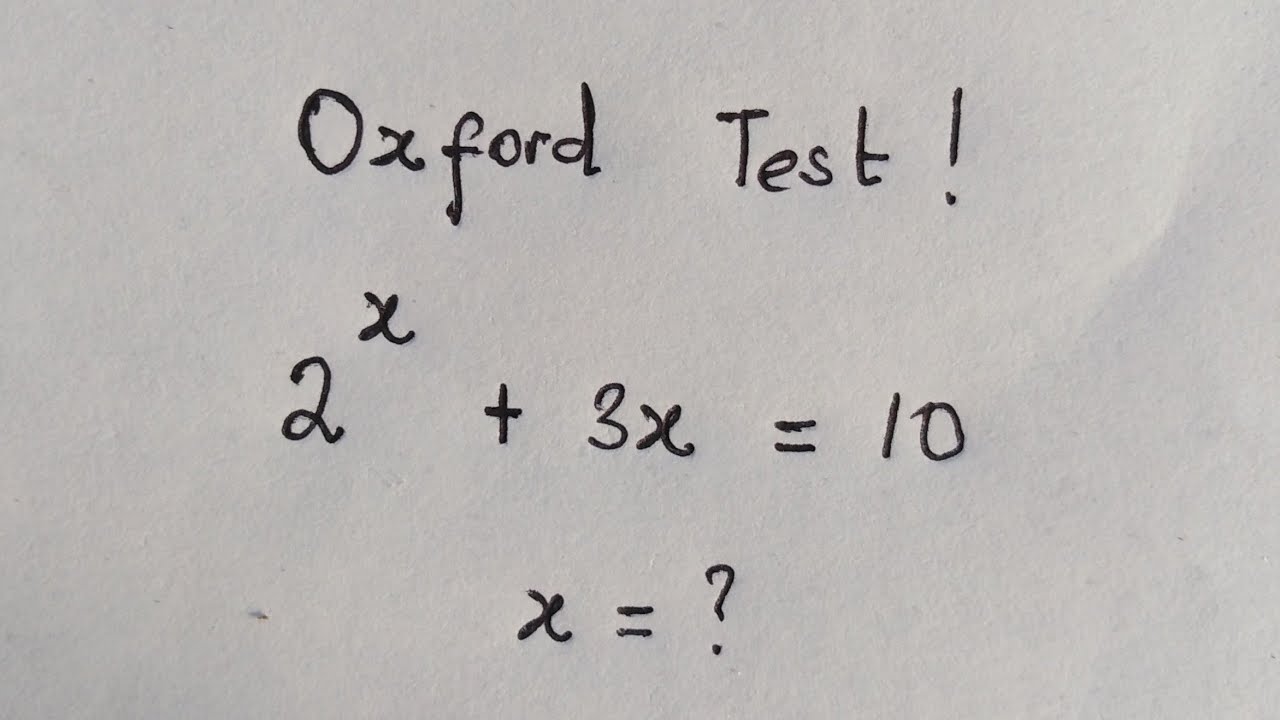 Oxford Test!
2ˣ + 3x = 10
x = ?